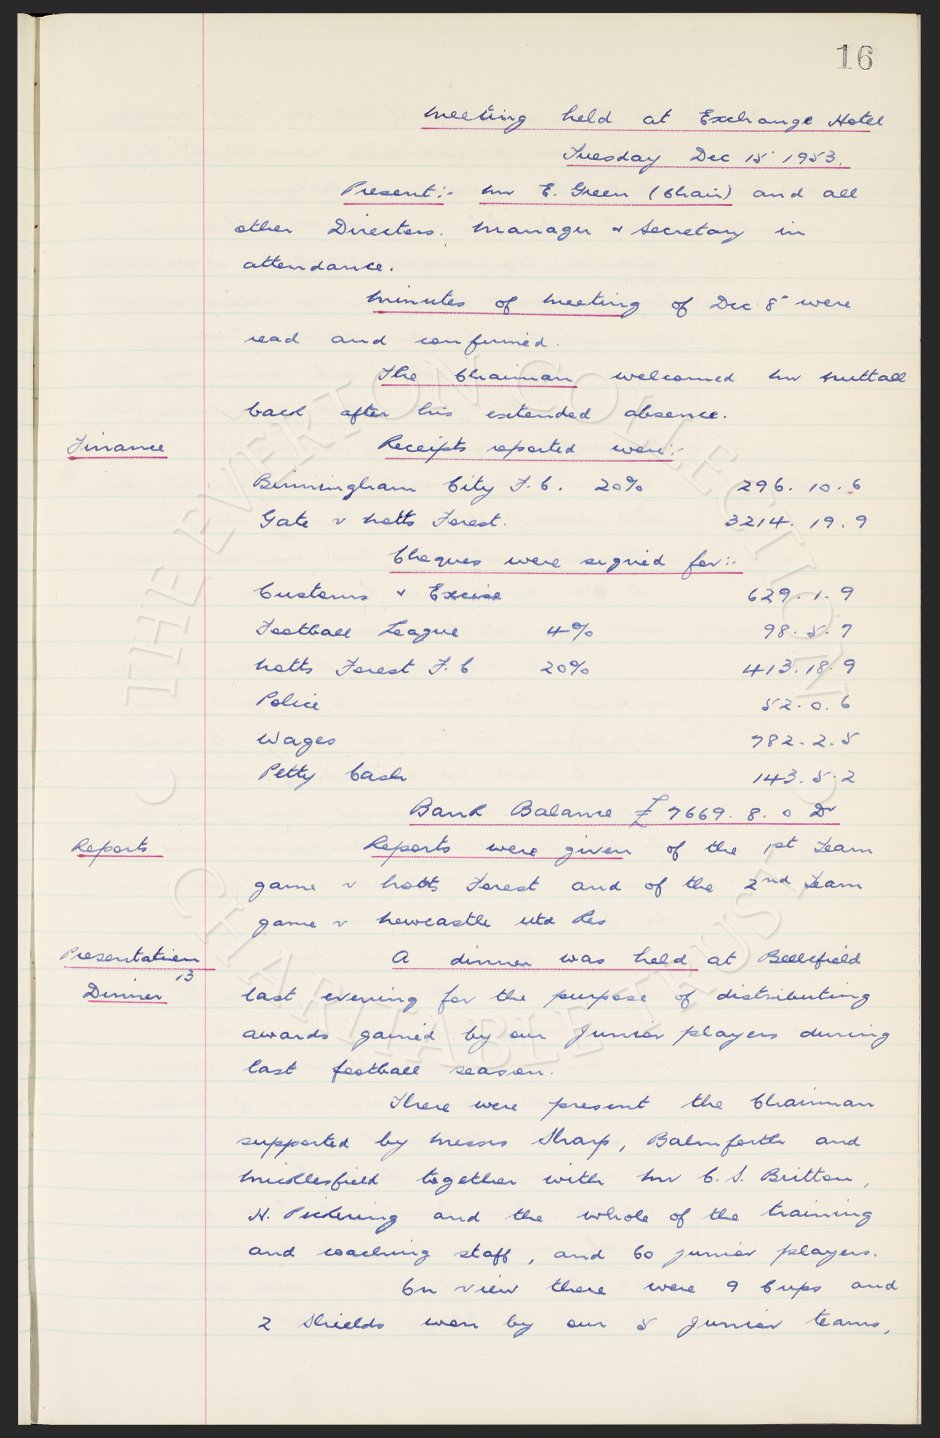 16
Meeting held at Exchange Hotel
Tuesday Dec 15 1953.
Present:- Mr E. Green (Chair) and all
other Directors. Manager & Secretary in
attendance.
Minutes of meeting of Dec 8" were
read and confirmed.
The Chairman welcomed Mr Nuttall
back after his extended absence.
Finance
Receipts reported were:-
Birmingham City F.C. 20% 296. 10. 6
Gate v Notts Forest. 3214. 19. 9
Cheques were signed for:-
Customs & Excise 629. 1. 9
Football League 4% 98. 5. 7
Notts Forest F.C 20% 413. 18. 9
Police 52. 0. 6
Wages 782. 2. 5
Petty Cash 143. 5. 2
Bank Balance £7669. 8. 0 Dr
Reports
Reports were given of the 1st Team
game v Notts Forest and of the 2nd Team
game v Newcastle Utd Res
Presentation
Dinner 13
A dinner was held at Bellefield
last evening for the purpose of distributing
awards gained by our Junior players during
last football season.
There were present the Chairman
supported by Messrs Sharp, Balmforth and
Micklesfield together with Mr C. S. Britton,
H. Pickering and the whole of the training
and coaching staff, and 60 junior players.
On view there were 9 Cups and
2 Shields won by our 5 Junior teams,
© THE EVERTON COLLECTION
CHARITABLE TRUST